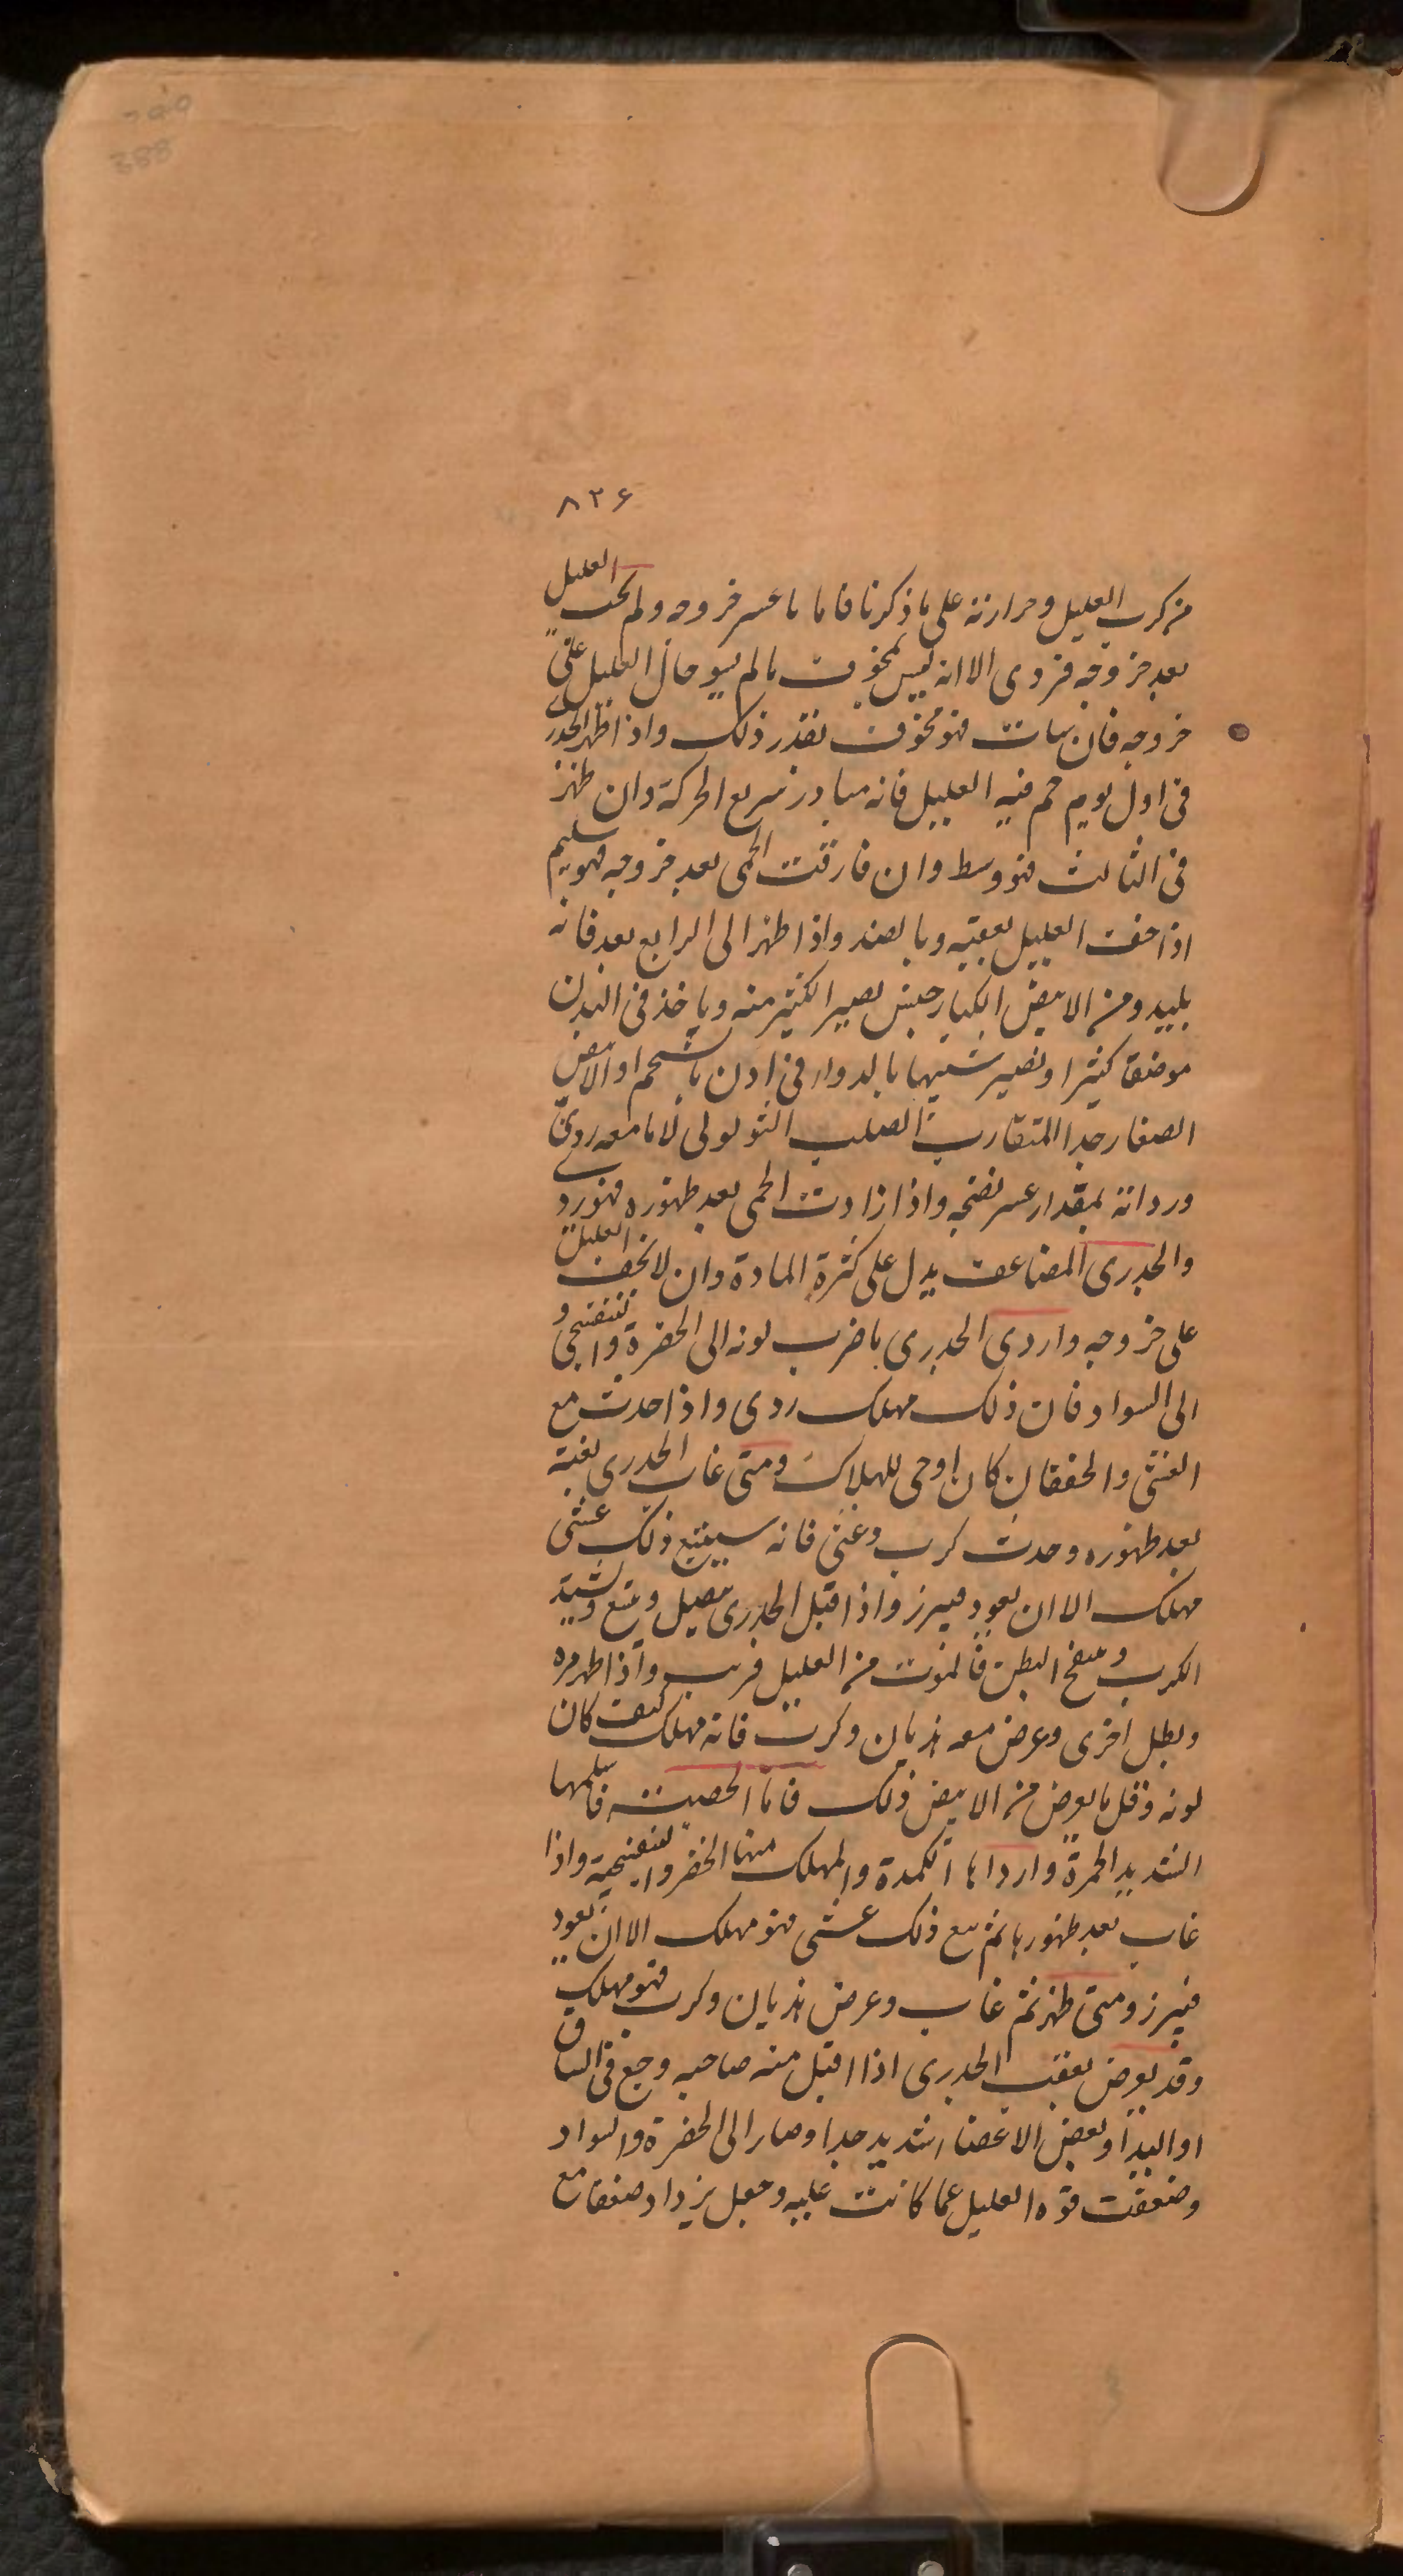 ٨٢۶
من كرب العليل وحرارته على ما ذكرنا فاما ما عسر خروجه ولم يخف العليل
بعد خروجه فردى الا انه ليس بمخوف ما لم يسو حال العليل على
خروجه فان سات فهو مخوف بقدر ذلك واذا ظهر الجدرى
فى اول يوم حم فيه العليل فانه مبادر سريع الحركة وان ظهر
فى الثالث فهو وسط وان فارقت الحمى بعد خروجه فهو سليم
اذا خف العليل بعقبه وبالضد واذا ظهر الى الرابع بعد فانه
بليد ومن الابيض الكبار جنس يصير الكثير منه وياخذ فى البدن
موضعا كثيرا ويصير شبيها بالدوار فى ادن بالشحم او الابيض
الصغار جدا المتقارب الصلب الثولولى لا ما معه ردى
ورداته بمقدار عسر نضجه واذا زادت الحمى بعد ظهوره فهو ردى
والجدرى المضاعف يدل على كثرة المادة وان لا يخف العليل
على خروجه واردى الجدرى ما ضرب لونه الى الخضرة والبنفسجى و
الى السواد فان ذلك مهلك ردى واذا حدث مع
الغشى والخفقان كان اوحى للهلاك ومتى غاب الجدرى بغتة
بعد ظهوره وحدث كرب وغشى فانه سيتبع ذلك غشى
مهلك الا ان يعود فيبرز واذا اقبل الجدرى يتصل ويتسع ويشتد
الكرب وينتفخ البطن فالموت من العليل قريب واذا ظهر مرة
وبطل اخرى وعرض معه هذيان وكرب فانه مهلك كيف كان
لونه وقل ما يعرض من الابيض ذلك فاما الحصبة فاسلمها
الشديد الحمرة وارداها الكمدة والمهلك منها الخضر والبنفسجية واذا
غاب بعد ظهورها ثم تبع ذلك غشى فهو مهلك الا ان يعود
فيبرز ومتى ظهر ثم غاب وعرض هذيان وكرب فهو مهلك
وقد يعرض بعقب الجدرى اذا اقبل منه صاحبه وجع فى الساق
او اليد او بعض الاعضا شديد جدا وصار الى الخضرة والسواد
وضعفت قوه العليل عما كانت عليه وجعل يزداد ضعفا مع